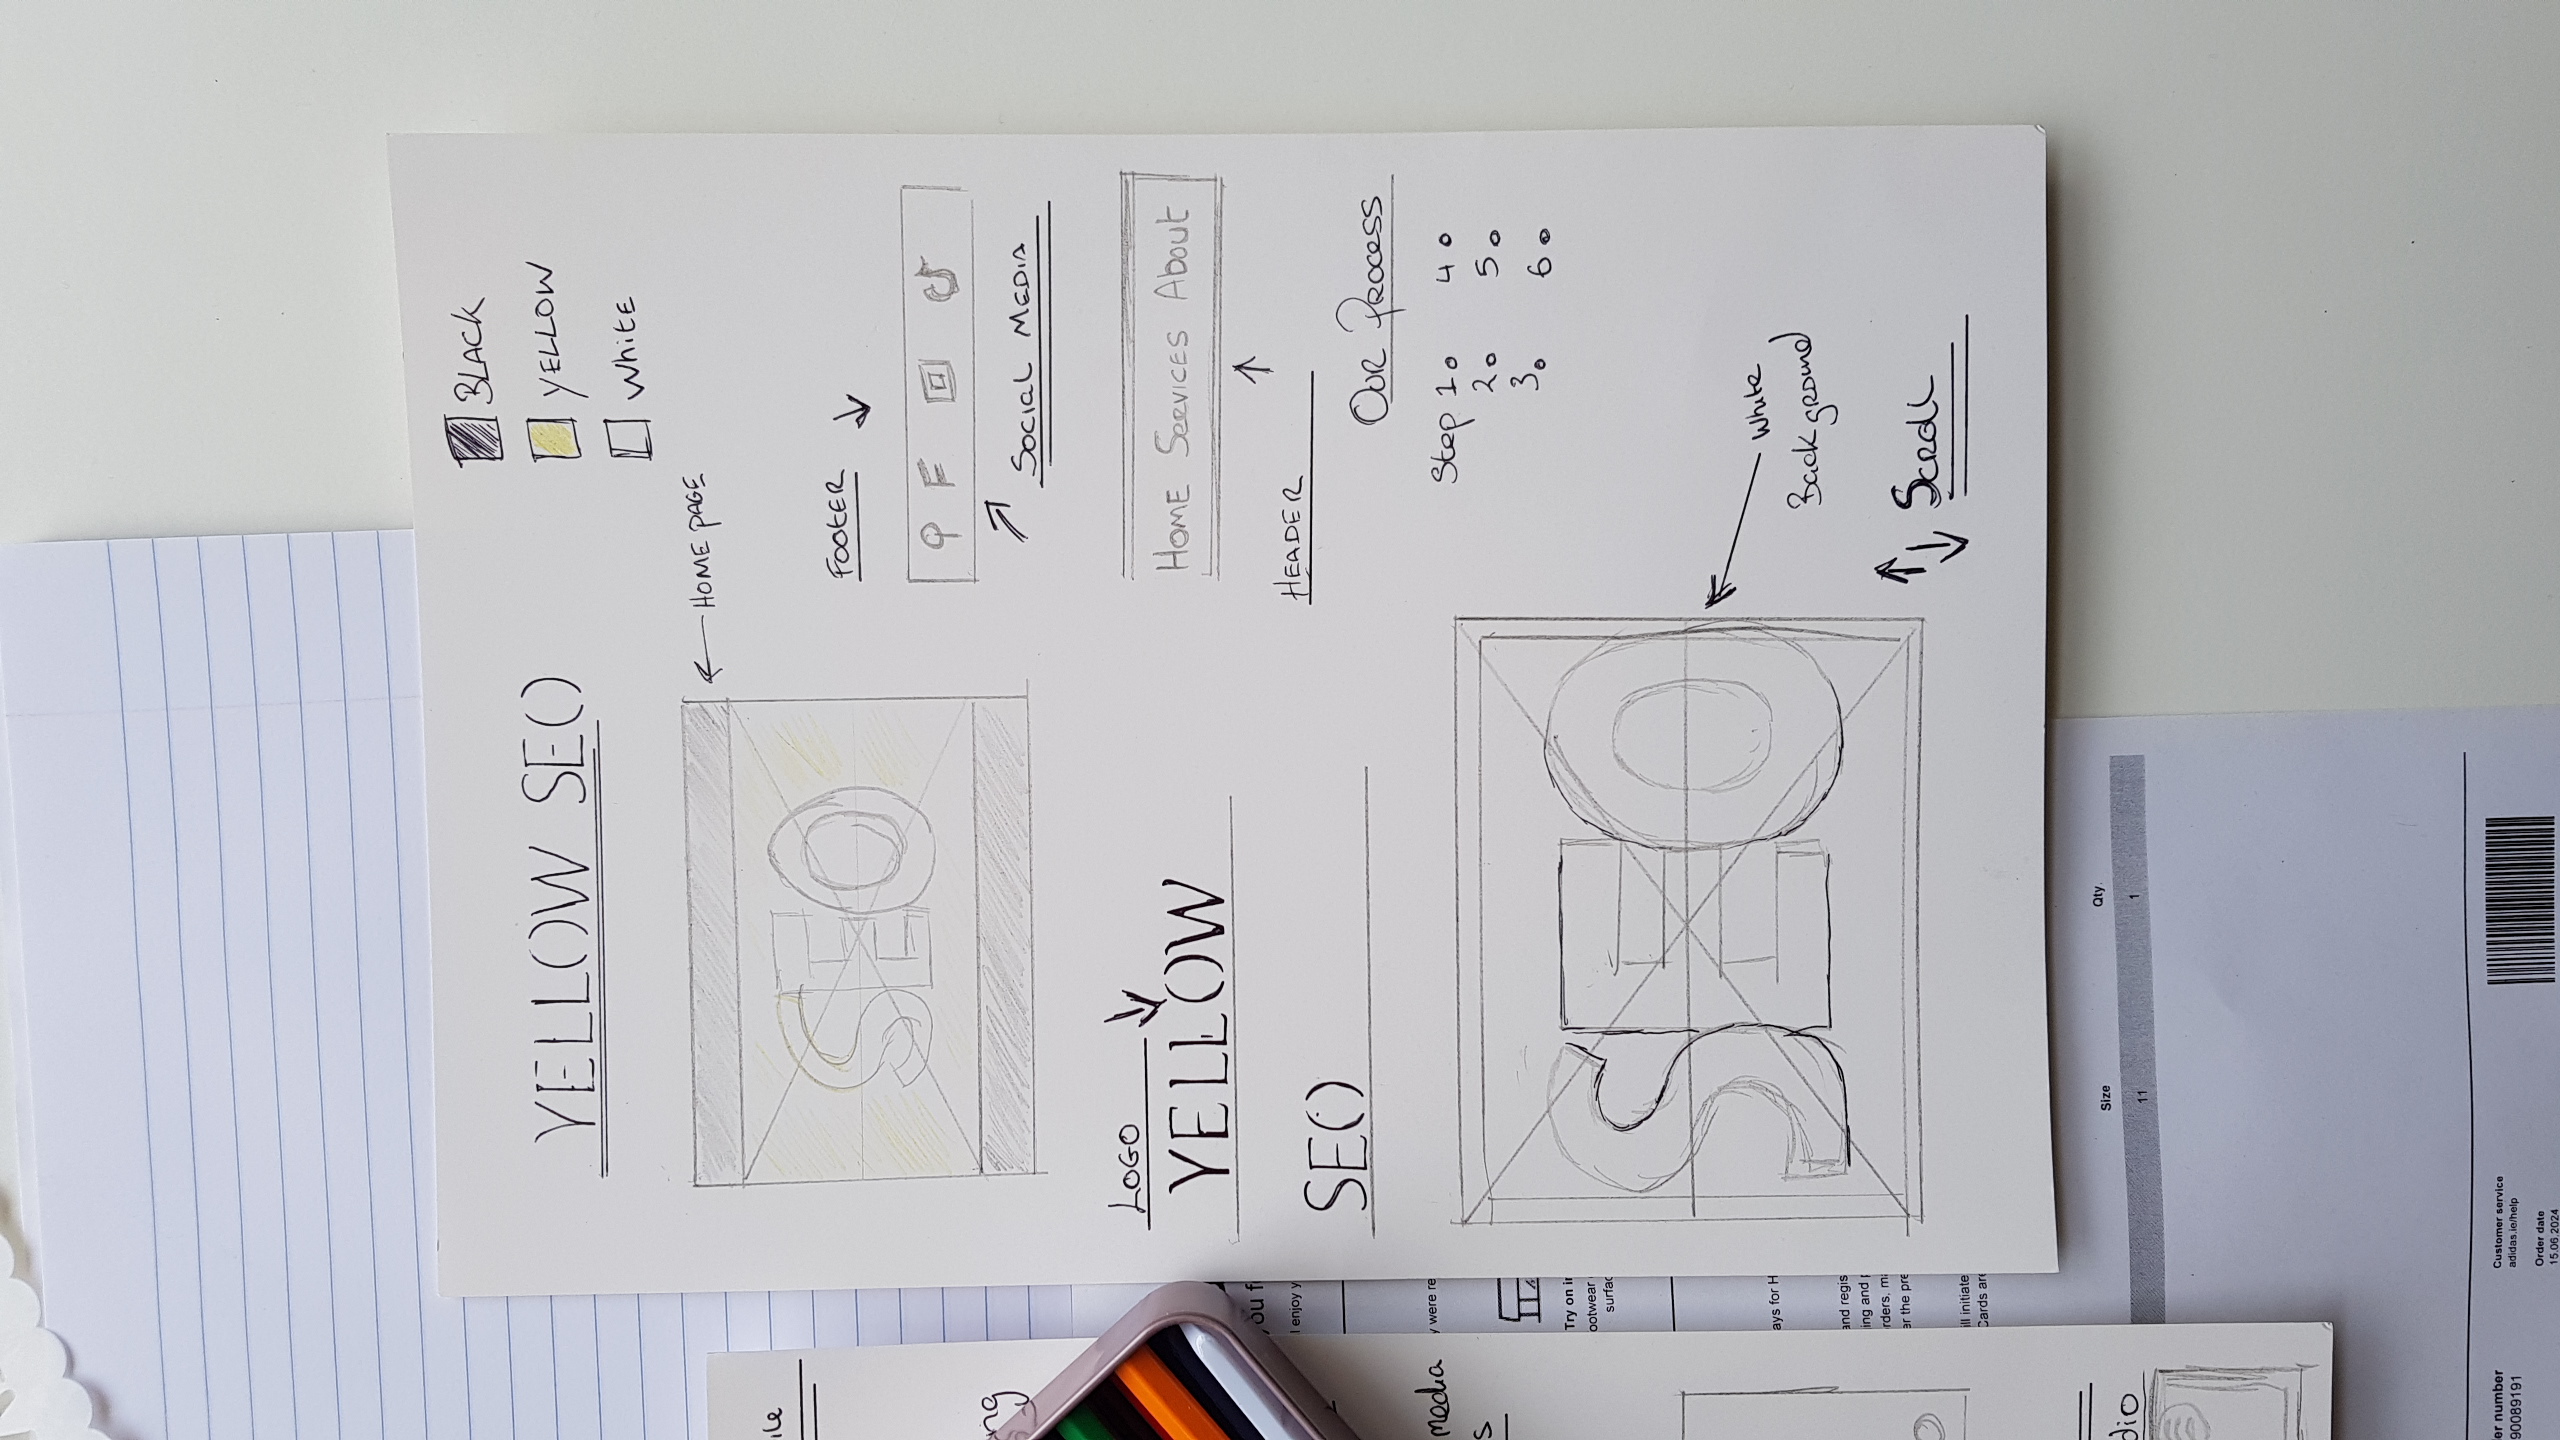 BLACK
YELLOW
White
YELLOW SEO
HOME PAGE
SEO
FOOTER
SOCIAL MEDIA
LOGO
YELLOW
HOME SERVICES About
HEADER
SEO
OUR PROCESS
Step 1. 4.
2. 5.
3. 6.
SEO
White
Background
SCROLL
ile
ng
media
s
dio
ou f
I enjoy y
y were re
Try on i
ootwear
surfac
ays for H
and regis
ing and
rders, m
er the pre
ill initiate
Cards are
Size Qty
11 1
er number
90089191
Customer service
adidas.ie/help
Order date
15.06.2024